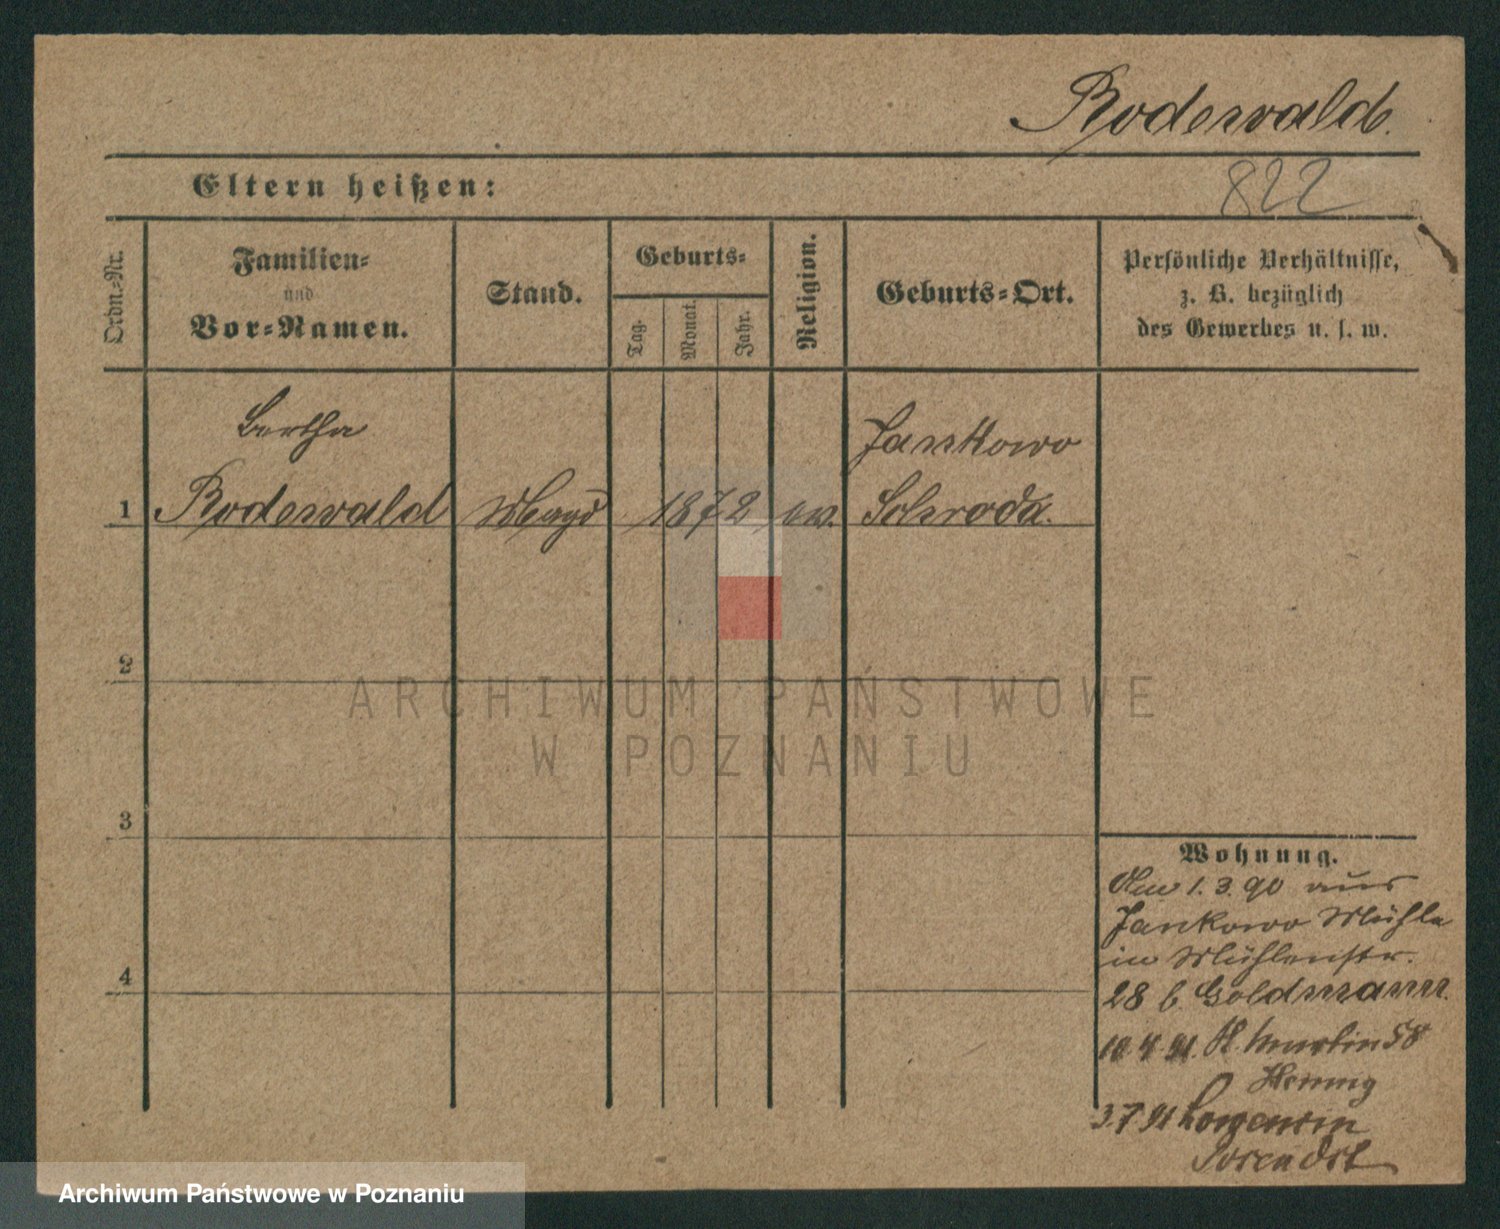 Rodewald.
822
Eltern heißen:
Ordn.-Nr.
Familien-
und
Vor-Namen.
Stand.
Geburts-
Tag.
Monat.
Jahr.
Religion.
Geburts-Ort.
Persönliche Verhältnisse,
z. B. bezüglich
des Gewerbes u. s. w.
Bertha
1 Rodewald Magd 1872 ev. Jankowo
Schroda.
2
3
4
Wohnung.
Am 1.3.90 aus
Jankowo Mühle
in Mühlenstr.
28 b. Goldmann.
10.4.91. St. Martin 58
Hennig
3.7.91
ARCHIWUM PAŃSTWOWE
W POZNANIU
Archiwum Państwowe w Poznaniu